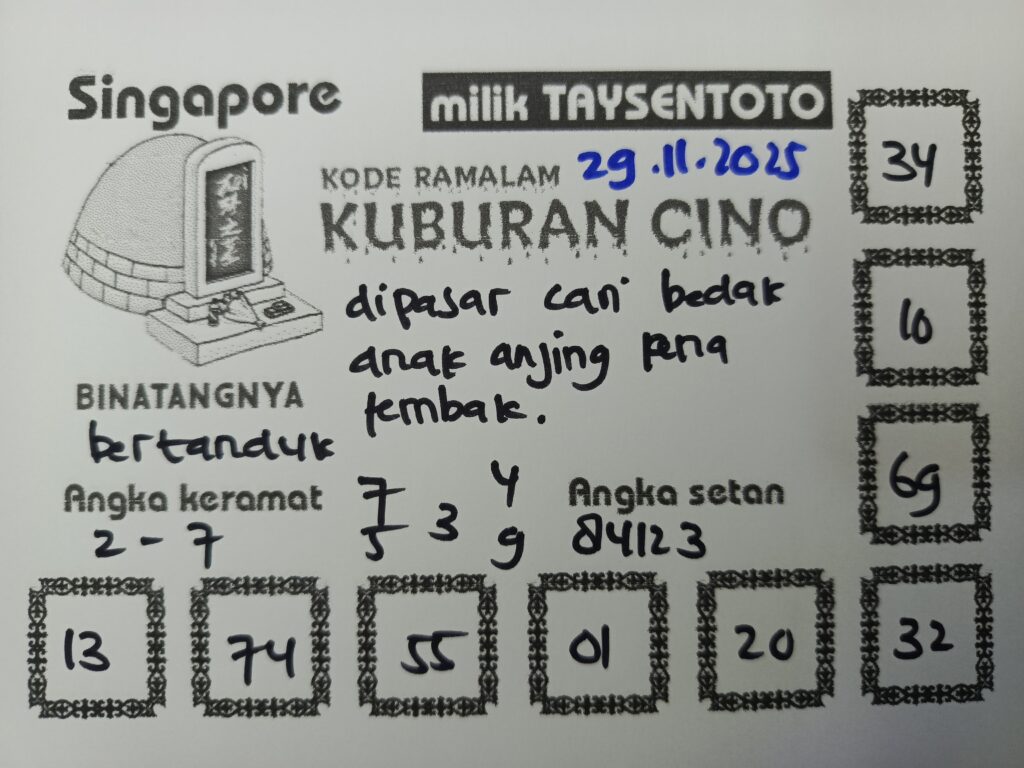 Singapore
milik TAYSENTOTO
29.11.2025
KODE RAMALAM
KUBURAN CINO
dipasar cari bedak
anak anjing kena
tembak.
BINATANGNYA
bertanduk
Angka keramat
2 - 7
7 4
3
5 9
Angka setan
84123
34
10
69
13
74
55
01
20
32